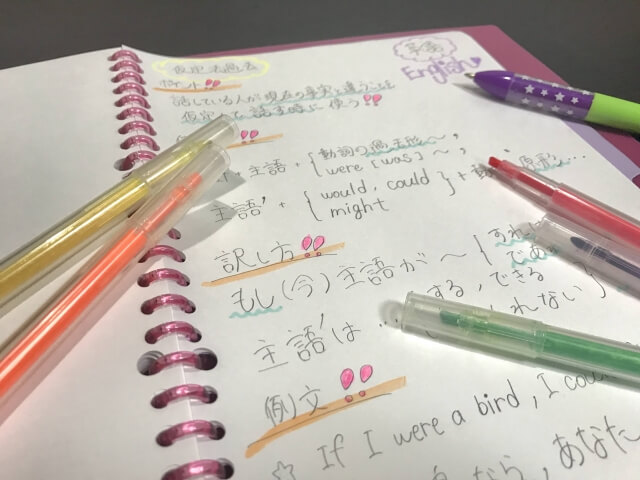 英語
English
仮定法過去
ポイント!!
話している人が現在の事実と違うことを
仮定して、話す時に使う!!
!!
主語 + { 動詞の過去形〜,
were [was] 〜,
主語' + { would, could
might } + 動 原形...
訳し方!!
もし(今)主語が〜 {
であ
主語'は ... する, できる
れない }
例文!!
☆ If I were a bird, I cou
なら, あなた